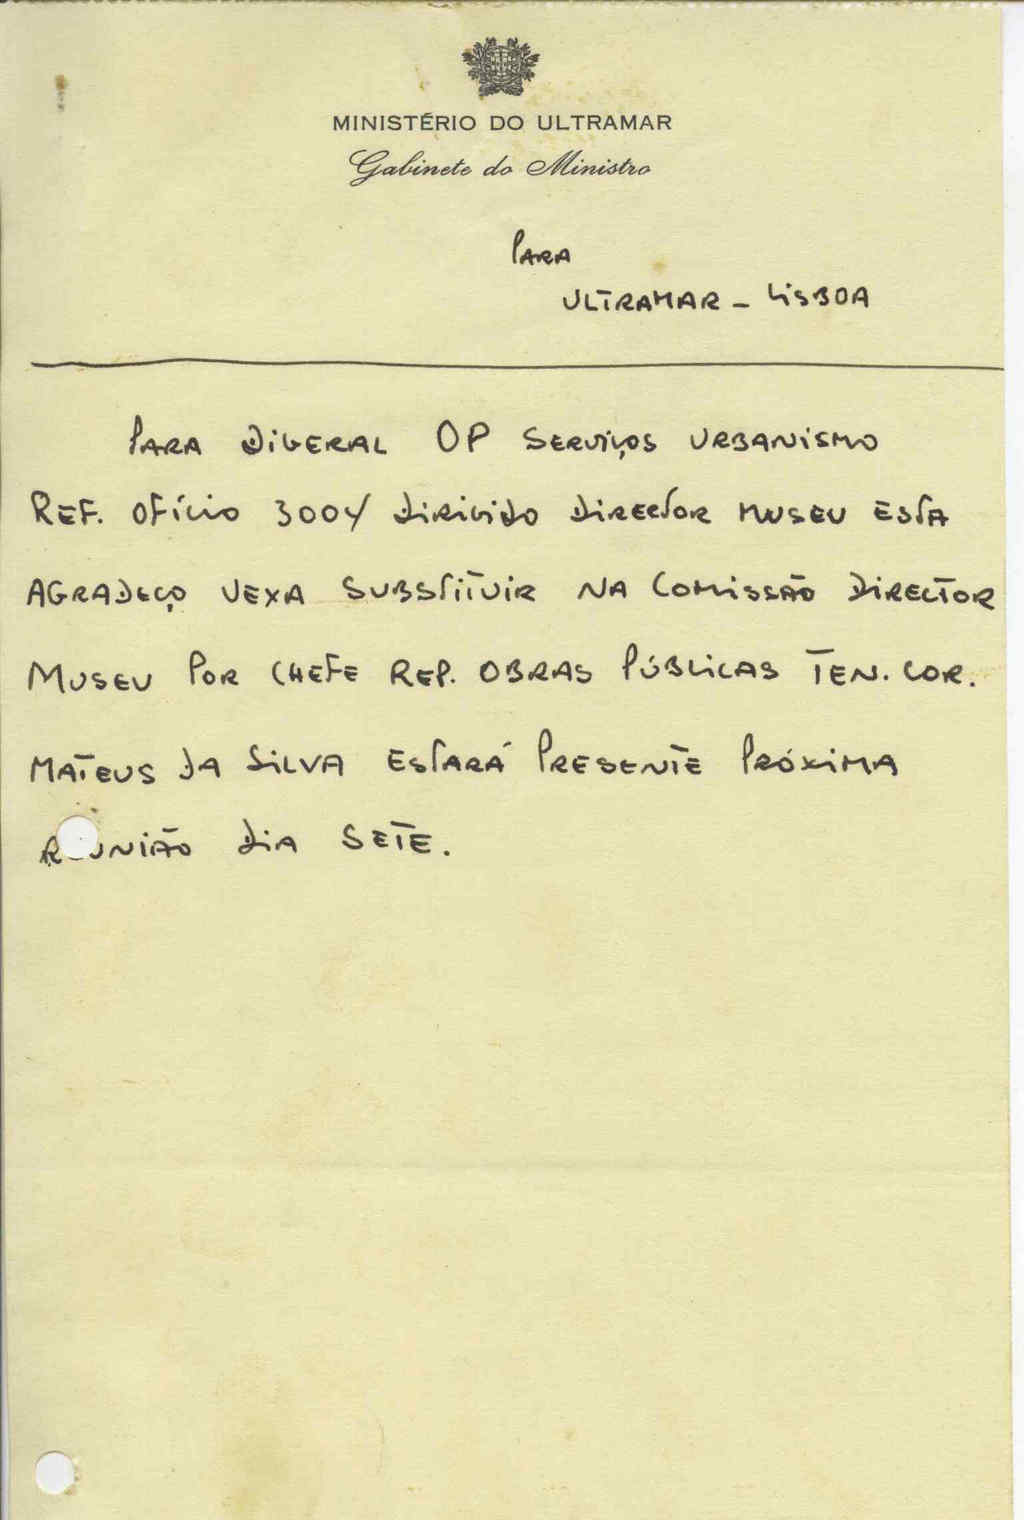 MINISTÉRIO DO ULTRAMAR
Gabinete do Ministro
PARA
ULTRAMAR - LISBOA
PARA DIGERAL OP SERVIÇOS URBANISMO
REF. OFÍCIO 3004 DIRIGIDO DIRECTOR MUSEU ESTA
AGRADEÇO VEXA SUBSTITUIR NA COMISSÃO DIRECTOR
MUSEU POR CHEFE REP. OBRAS PÚBLICAS TEN. COR.
MATEUS DA SILVA ESTARÁ PRESENTE PRÓXIMA
REUNIÃO DIA SETE.